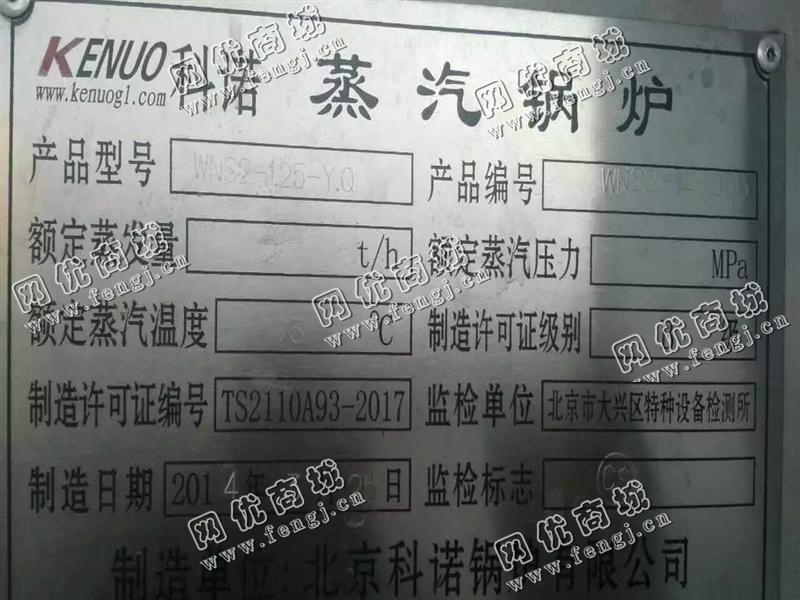 KENUO 科诺 蒸汽锅炉
www.kenuogl.com
产品型号 WNS2-1.25-Y.Q 产品编号
额定蒸发量 t/h 额定蒸汽压力 MPa
额定蒸汽温度 ℃ 制造许可证级别 级
制造许可证编号 TS2110A93-2017 监检单位 北京市大兴区特种设备检测所
制造日期 2014年 日 监检标志
制造单位:北京科诺锅炉有限公司
网优商城
www.fengj.cn
网优商城
www.fengj.cn
网优商城
www.fengj.cn
网优商城
www.fengj.cn
网优商城
www.fengj.cn
网优商城
www.fengj.cn
网优商城
www.fengj.cn
网优商城
www.fengj.cn